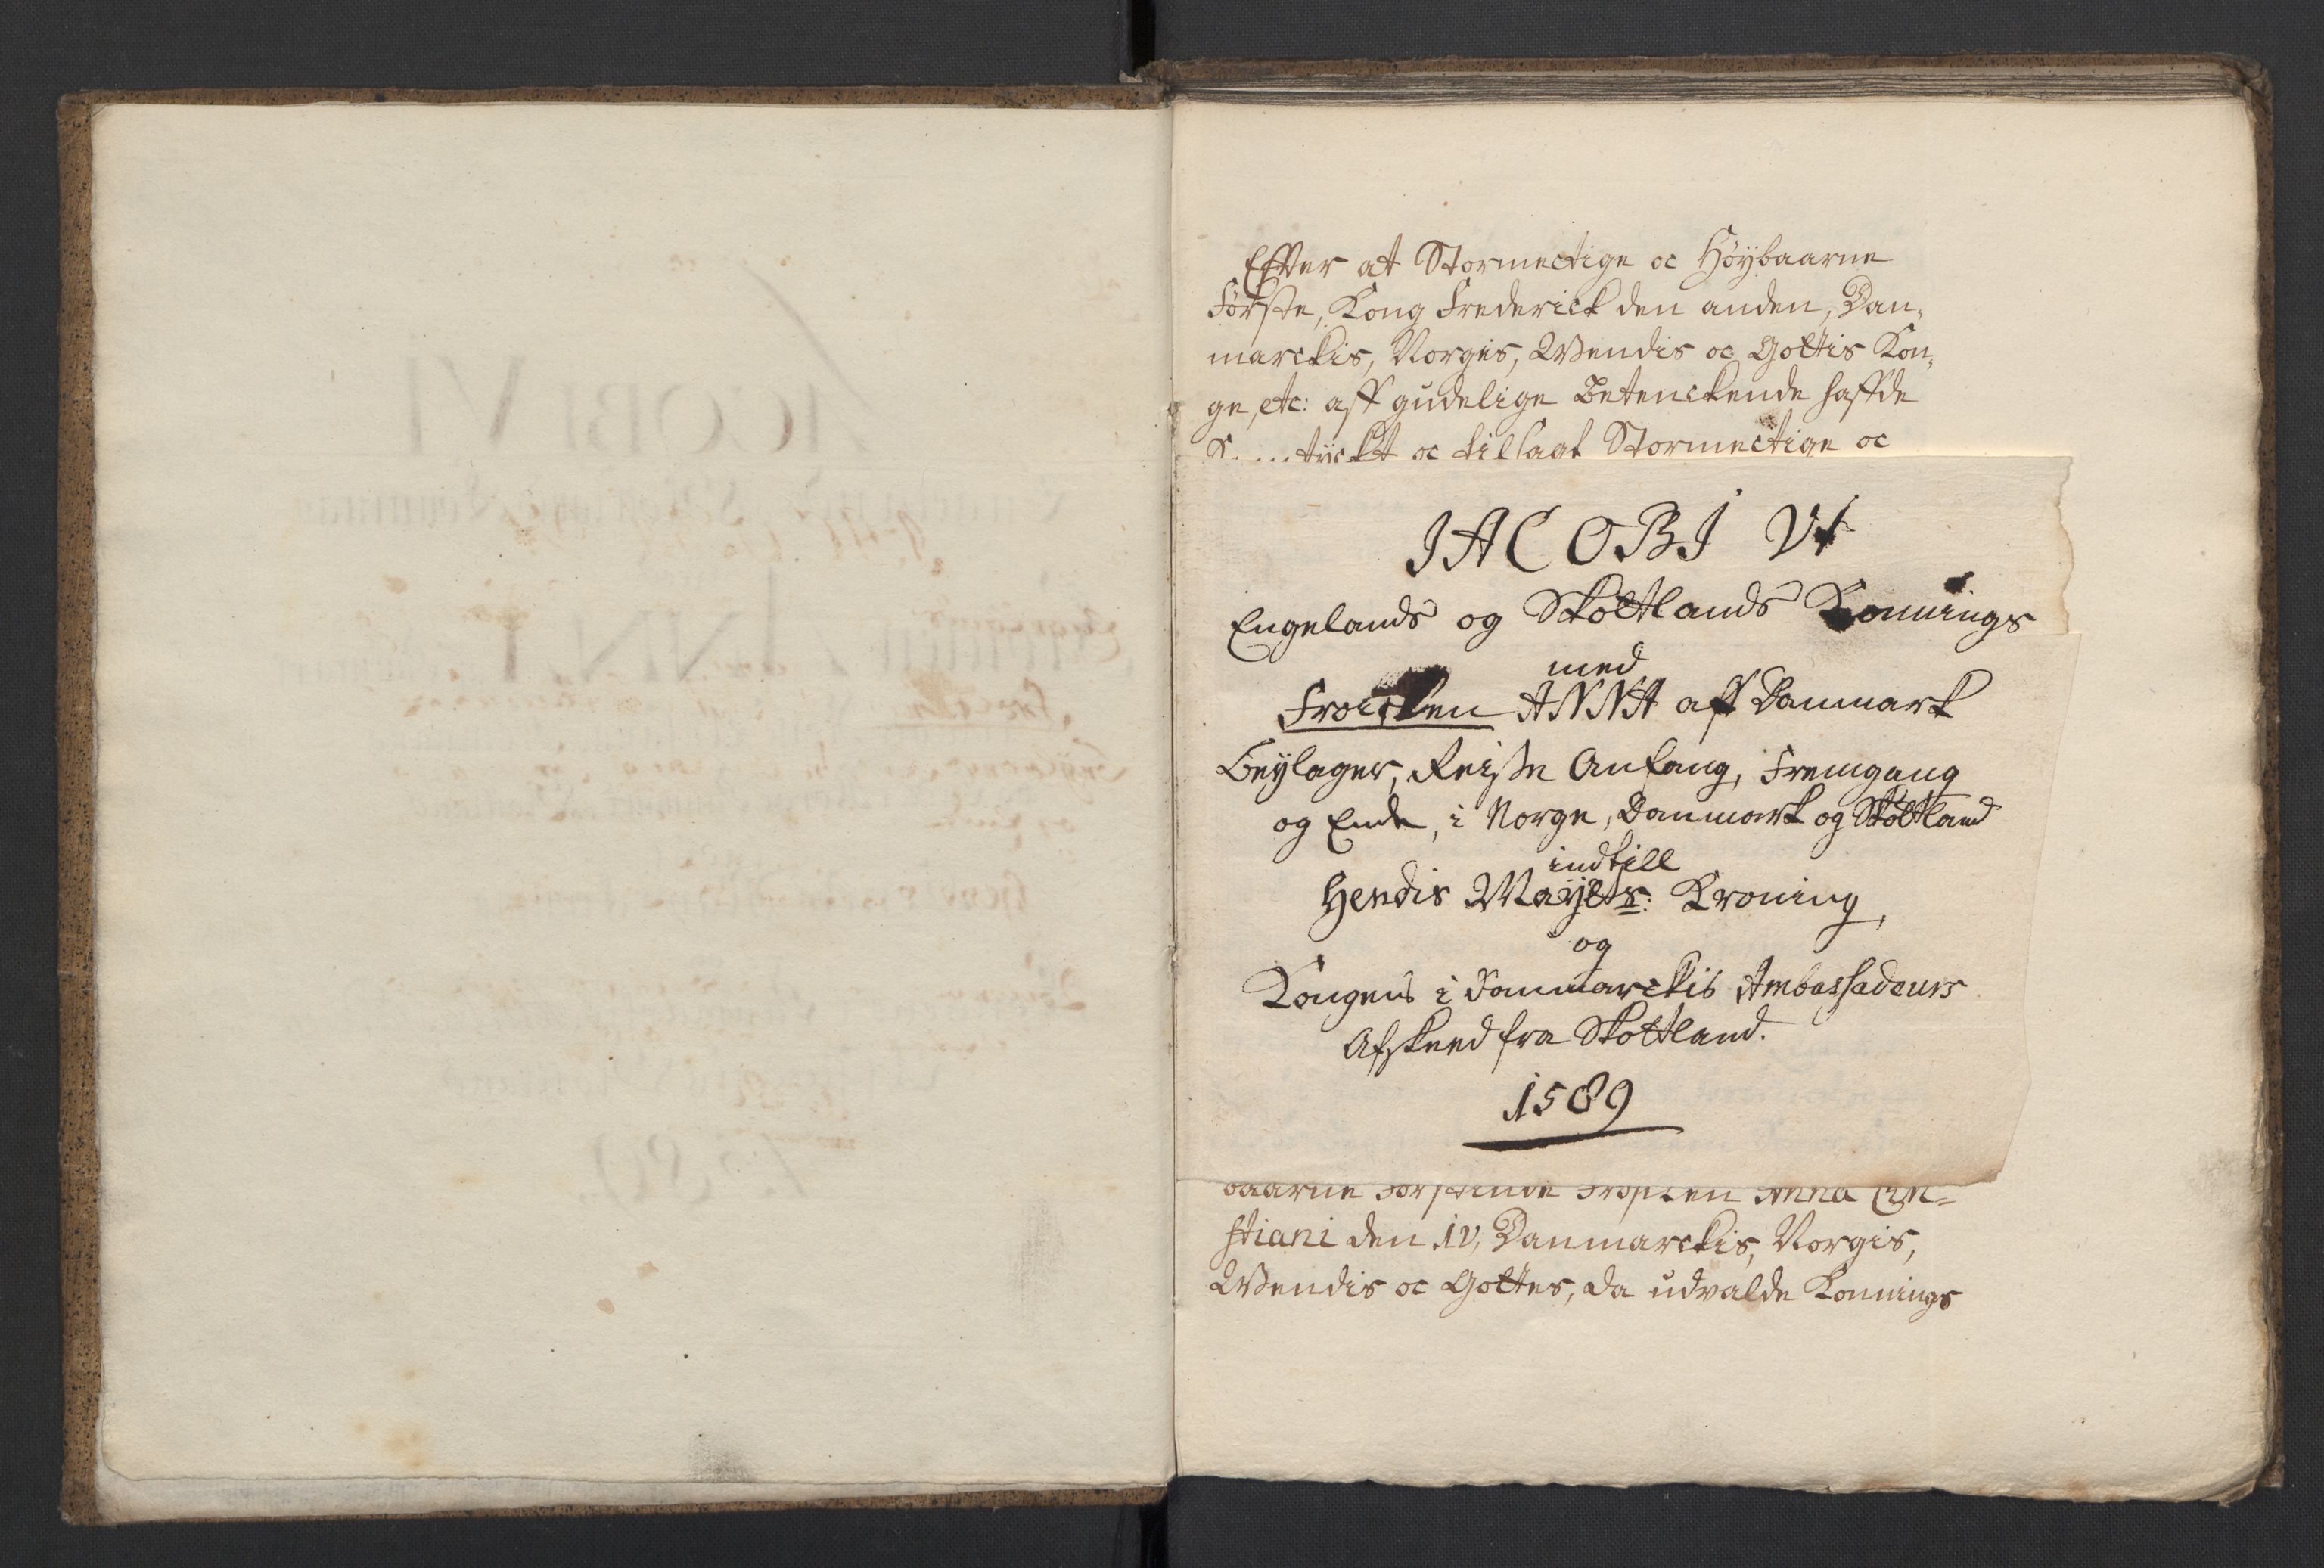 Effter at Stormectige oc Höÿbaarne
Förste, Kong Frederick den anden, Dan¸
marckis, Norgis, Wendis oc Gottis Kon¸
ge, etc: aff gudelige Betenckende haffde
oc tilsagt Stormectige oc
JACOBJ VI
Engelands og Skottlands Konnings
med
Froicken ANNA aff Danmark
Beÿlager, Reiße Anfang, Fremgang
og Ende, i Norge, Danmark og Skottland
indtill
Hendis Maÿtts: Kroning,
og
Kongens i Danmarckis Ambassadeurs
Afskeed fra Skottland.
1589
baarne Förstinde Frÿcken Anna Cri=
stiani den IV, Danmarckis, Norgis,
Wendis oc Gottes, da udvalde Konnings